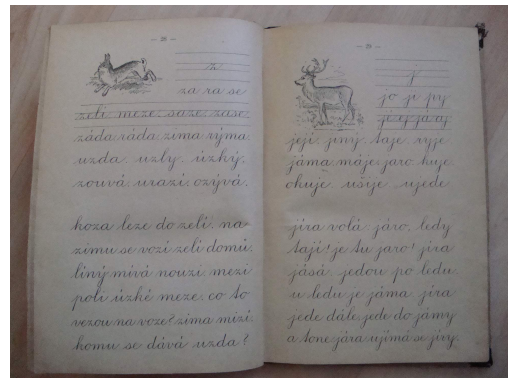 — 28 —
z
za ra se
zelí meze saze zase
záda ráda zima rýma
uzda uzly úzký
zouvá urazí ozývá
koza leze do zelí na-
zimu se vozí zelí domů
líný mívá nouzi mezi
poli úzké meze co to
vezou na voze? zima mizí
komu se dává uzda?
— 29 —
j
její jiný taje ryje
jáma máje jaro kuje
okuje ušije ujede
jíra volá: járo, ledy
tají! je tu jaro! jíra
jásá jedou po ledu
u ledu je jáma jíra
jede dále, jede do jámy
a tone jára ujímá se jíry